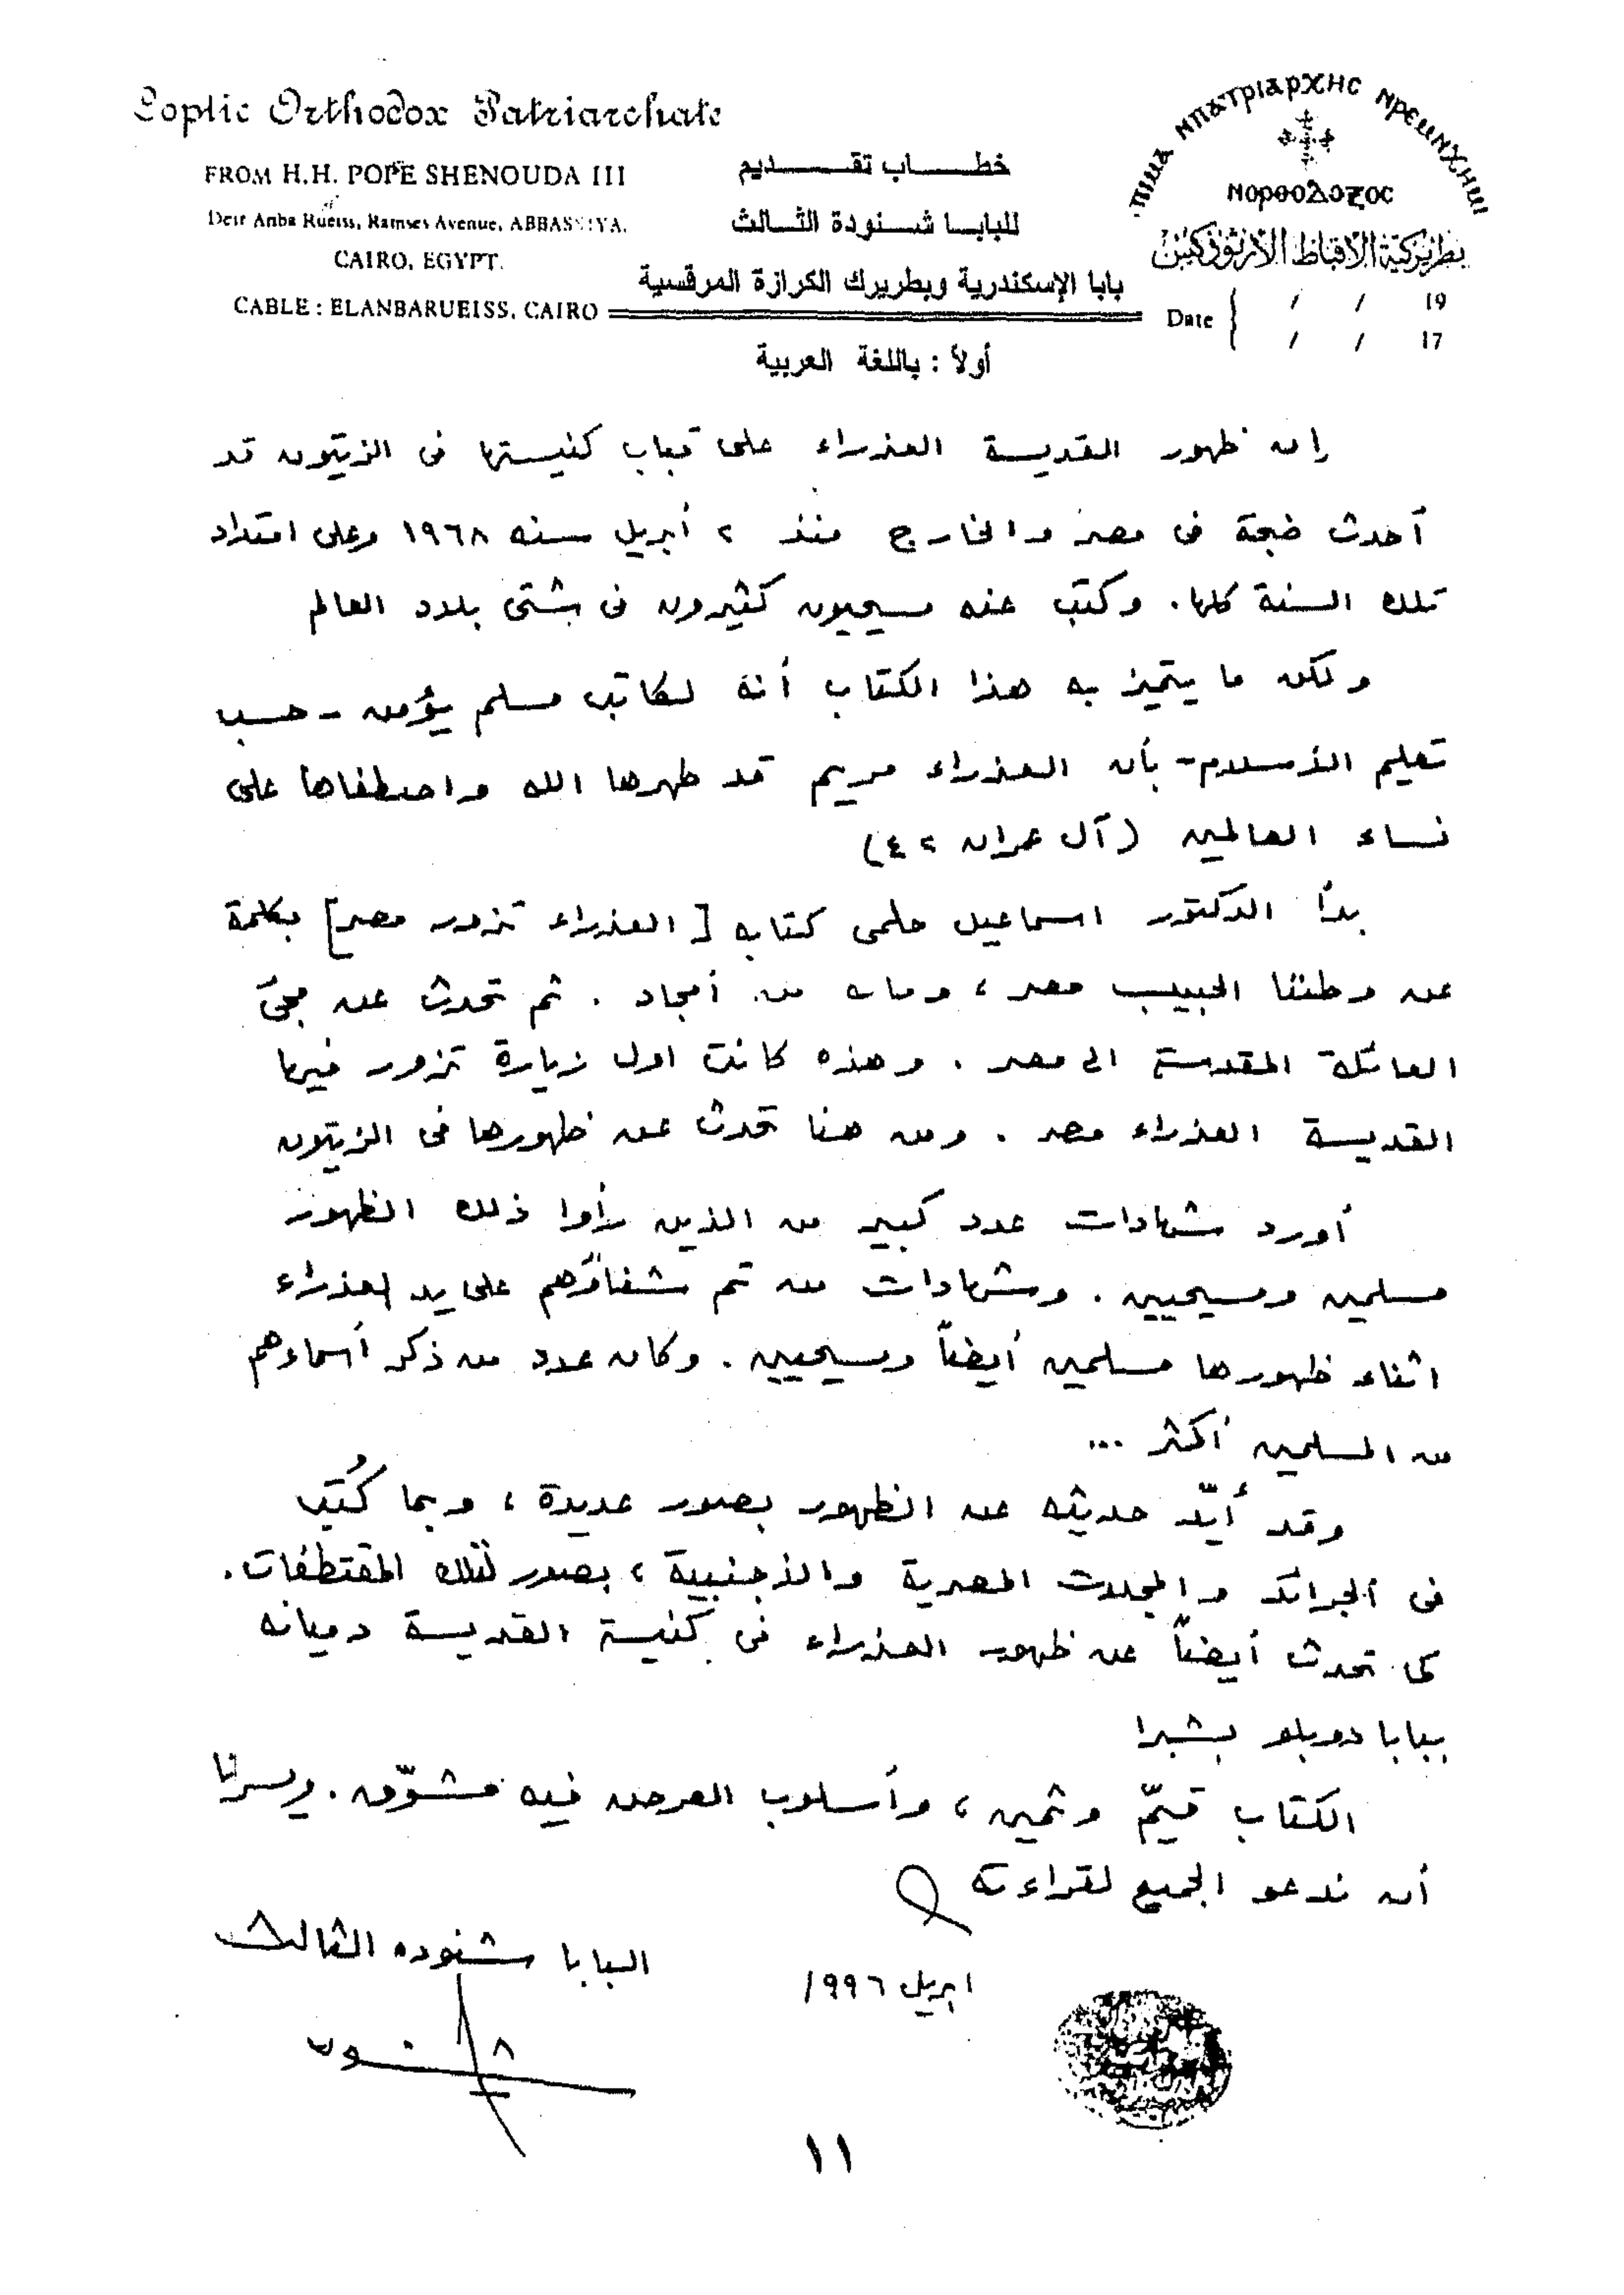 Coptic Orthodox Patriarchate
FROM H.H. POPE SHENOUDA III
Deir Anba Rueiss, Ramses Avenue, ABBASSIYA.
CAIRO, EGYPT.
CABLE : ELANBARUEISS, CAIRO
خطـــاب تقـــديم
للبابا شنودة الثالث
بابا الإسكندرية وبطريرك الكرازة المرقسية
ⲠⲒⲘⲀ ⲚⲠⲀⲦⲢⲒⲀⲢⲬⲎⲤ ⲚⲢⲈⲘⲚⲬⲎⲘⲒ
ⲚⲞⲢⲐⲞⲆⲞⲜⲞⲤ
بطريركية الاقباط الارثوذكس
Date { / / 19
/ / 17
أولاً : باللغة العربية
إن ظهور القديسة العذراء على قباب كنيستها فى الزيتون قد
أحدث ضجة فى مصر والخارج منذ ٢ أبريل سنه ١٩٦٨ وعلى امتداد
تلك السنة كلها. وكتب عنه مسيحيون كثيرون فى شتى بلاد العالم
ولكن ما يتميز به هذا الكتاب أنه لكاتب مسلم يؤمن - حسب
تعليم الأسلام - بأن العذراء مريم قد طهرها الله واصطفاها على
نساء العالمين (آل عمران ٤٢)
بدأ الدكتور اسماعيل حلمى كتابه [العذراء تزور مصر] بكلمة
عن وطننا الحبيب مصر ، وماله من أمجاد . ثم تحدث عن مجئ
العائلة المقدسة الى مصر . وهذه كانت اول زيارة تزور فيها
القديسة العذراء مصر . ومن هنا تحدث عن ظهورها فى الزيتون
أورد شهادات عدد كبير من الذين رأوا ذلك الظهور
مسلمين ومسيحيين . وشهادات من تم شفاؤهم على يد العذراء
اثناء ظهورها مسلمين أيضاً ومسيحيين . وكان عدد من ذكر أسماءهم
من المسلمين أكثر ...
وقد أيّد حديثه عن الظهور بصور عديدة ، وبما كُتب
فى الجرائد والمجلات المصرية والأجنبية ، بصور لتلك المقتطفات.
كما تحدث أيضاً عن ظهور العذراء فى كنيسة القديسة دميانه
ببابا دوبلو بشبرا
الكتاب قيّم وثمين ، وأسلوب العرض فيه مشوّق . ويسرنا
أن ندعو الجميع لقراءته
البابا شنوده الثالث
ابريل ١٩٩٦
شنوده
١١